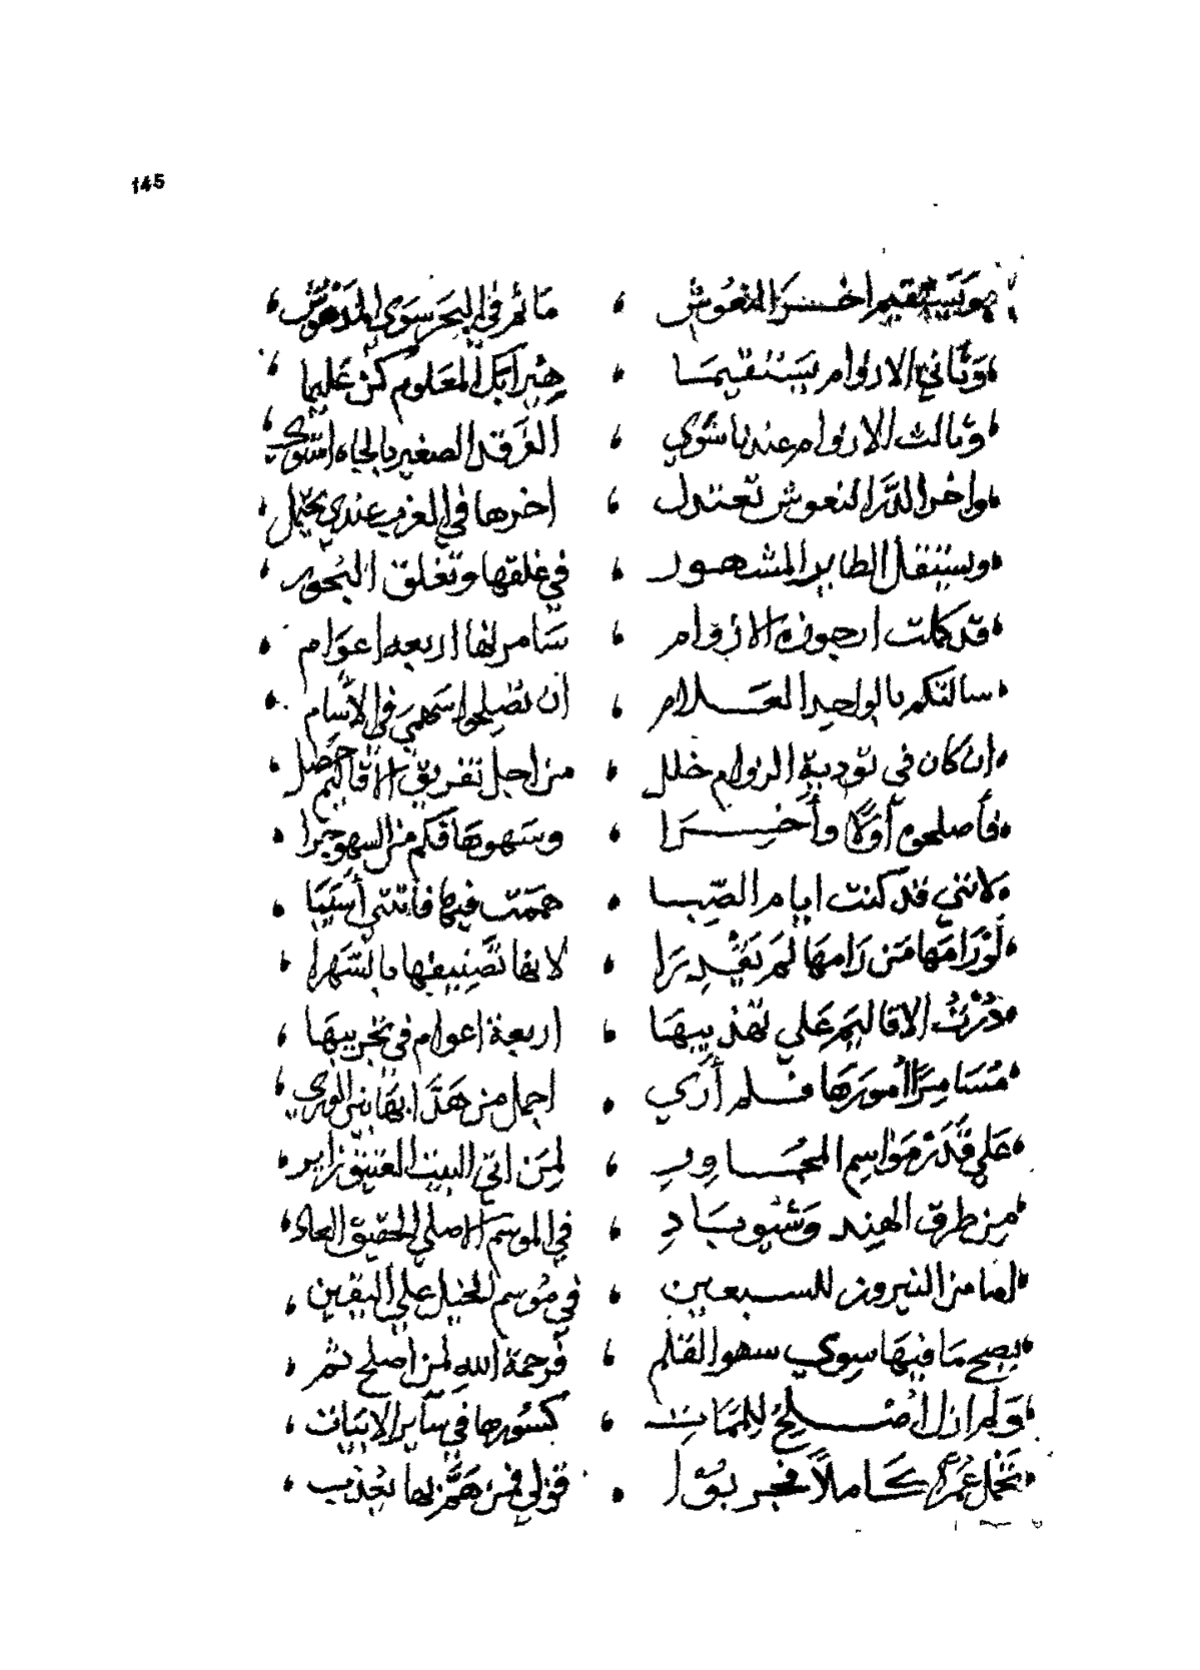 145
هو يستقيم اخر النعوش ، ما ثم في البحر سوى المدهوش ،
وثاني الازوام يستقيما ، خبرا بكل المعلوم كن عليما
وثالث الازوام عندنا شوي ، الفرقد الصغير بالجاه استوى
واخر النعوش تعتدل ، اخرها في الغرب عندي يحتمل ،
ويستقل الطاير المشهور ، في غلقها وتغلق البحور ،
قد كملت ارجوزة الازوام ، سامرتها اربعه اعوام ،
سالتكم بالواحد العلام ، ان تصلحوا سهمي في الاسام ،
ان كان في تودية الزوام خلل ، من اجل تفريق الاقاليم حصل ،
فأصلحوه أولًا وأخرا ، وسهوها فكم من السهو جرا ،
لانني قد كنت ايام الصبا ، هممت فيها فأتتني
لو رامها من رامها لم يقدرا ، لانها تصنيفها
درت الاقاليم علي تهذيبها ، اربعة اعوام في تجريبها ،
مسامرًا امورها فلم أري ، اجمل من هذا بها بين الوري ،
علي قدر مواسم ، لمن اتي البيت العتيق زاير ،
من طرق الهند ، في الموسم الاصلي الحقيق
اما من النيروز للسبعين ، في موسم علي اليقين ،
يصح ما فيها سوي سهو القلم ، فرحمة الله لمن اصلح ثم ،
ولم ازل اصلح للممات ، كسورها في ساير الابيات ،
كاملًا ، قولي فمن هم بها